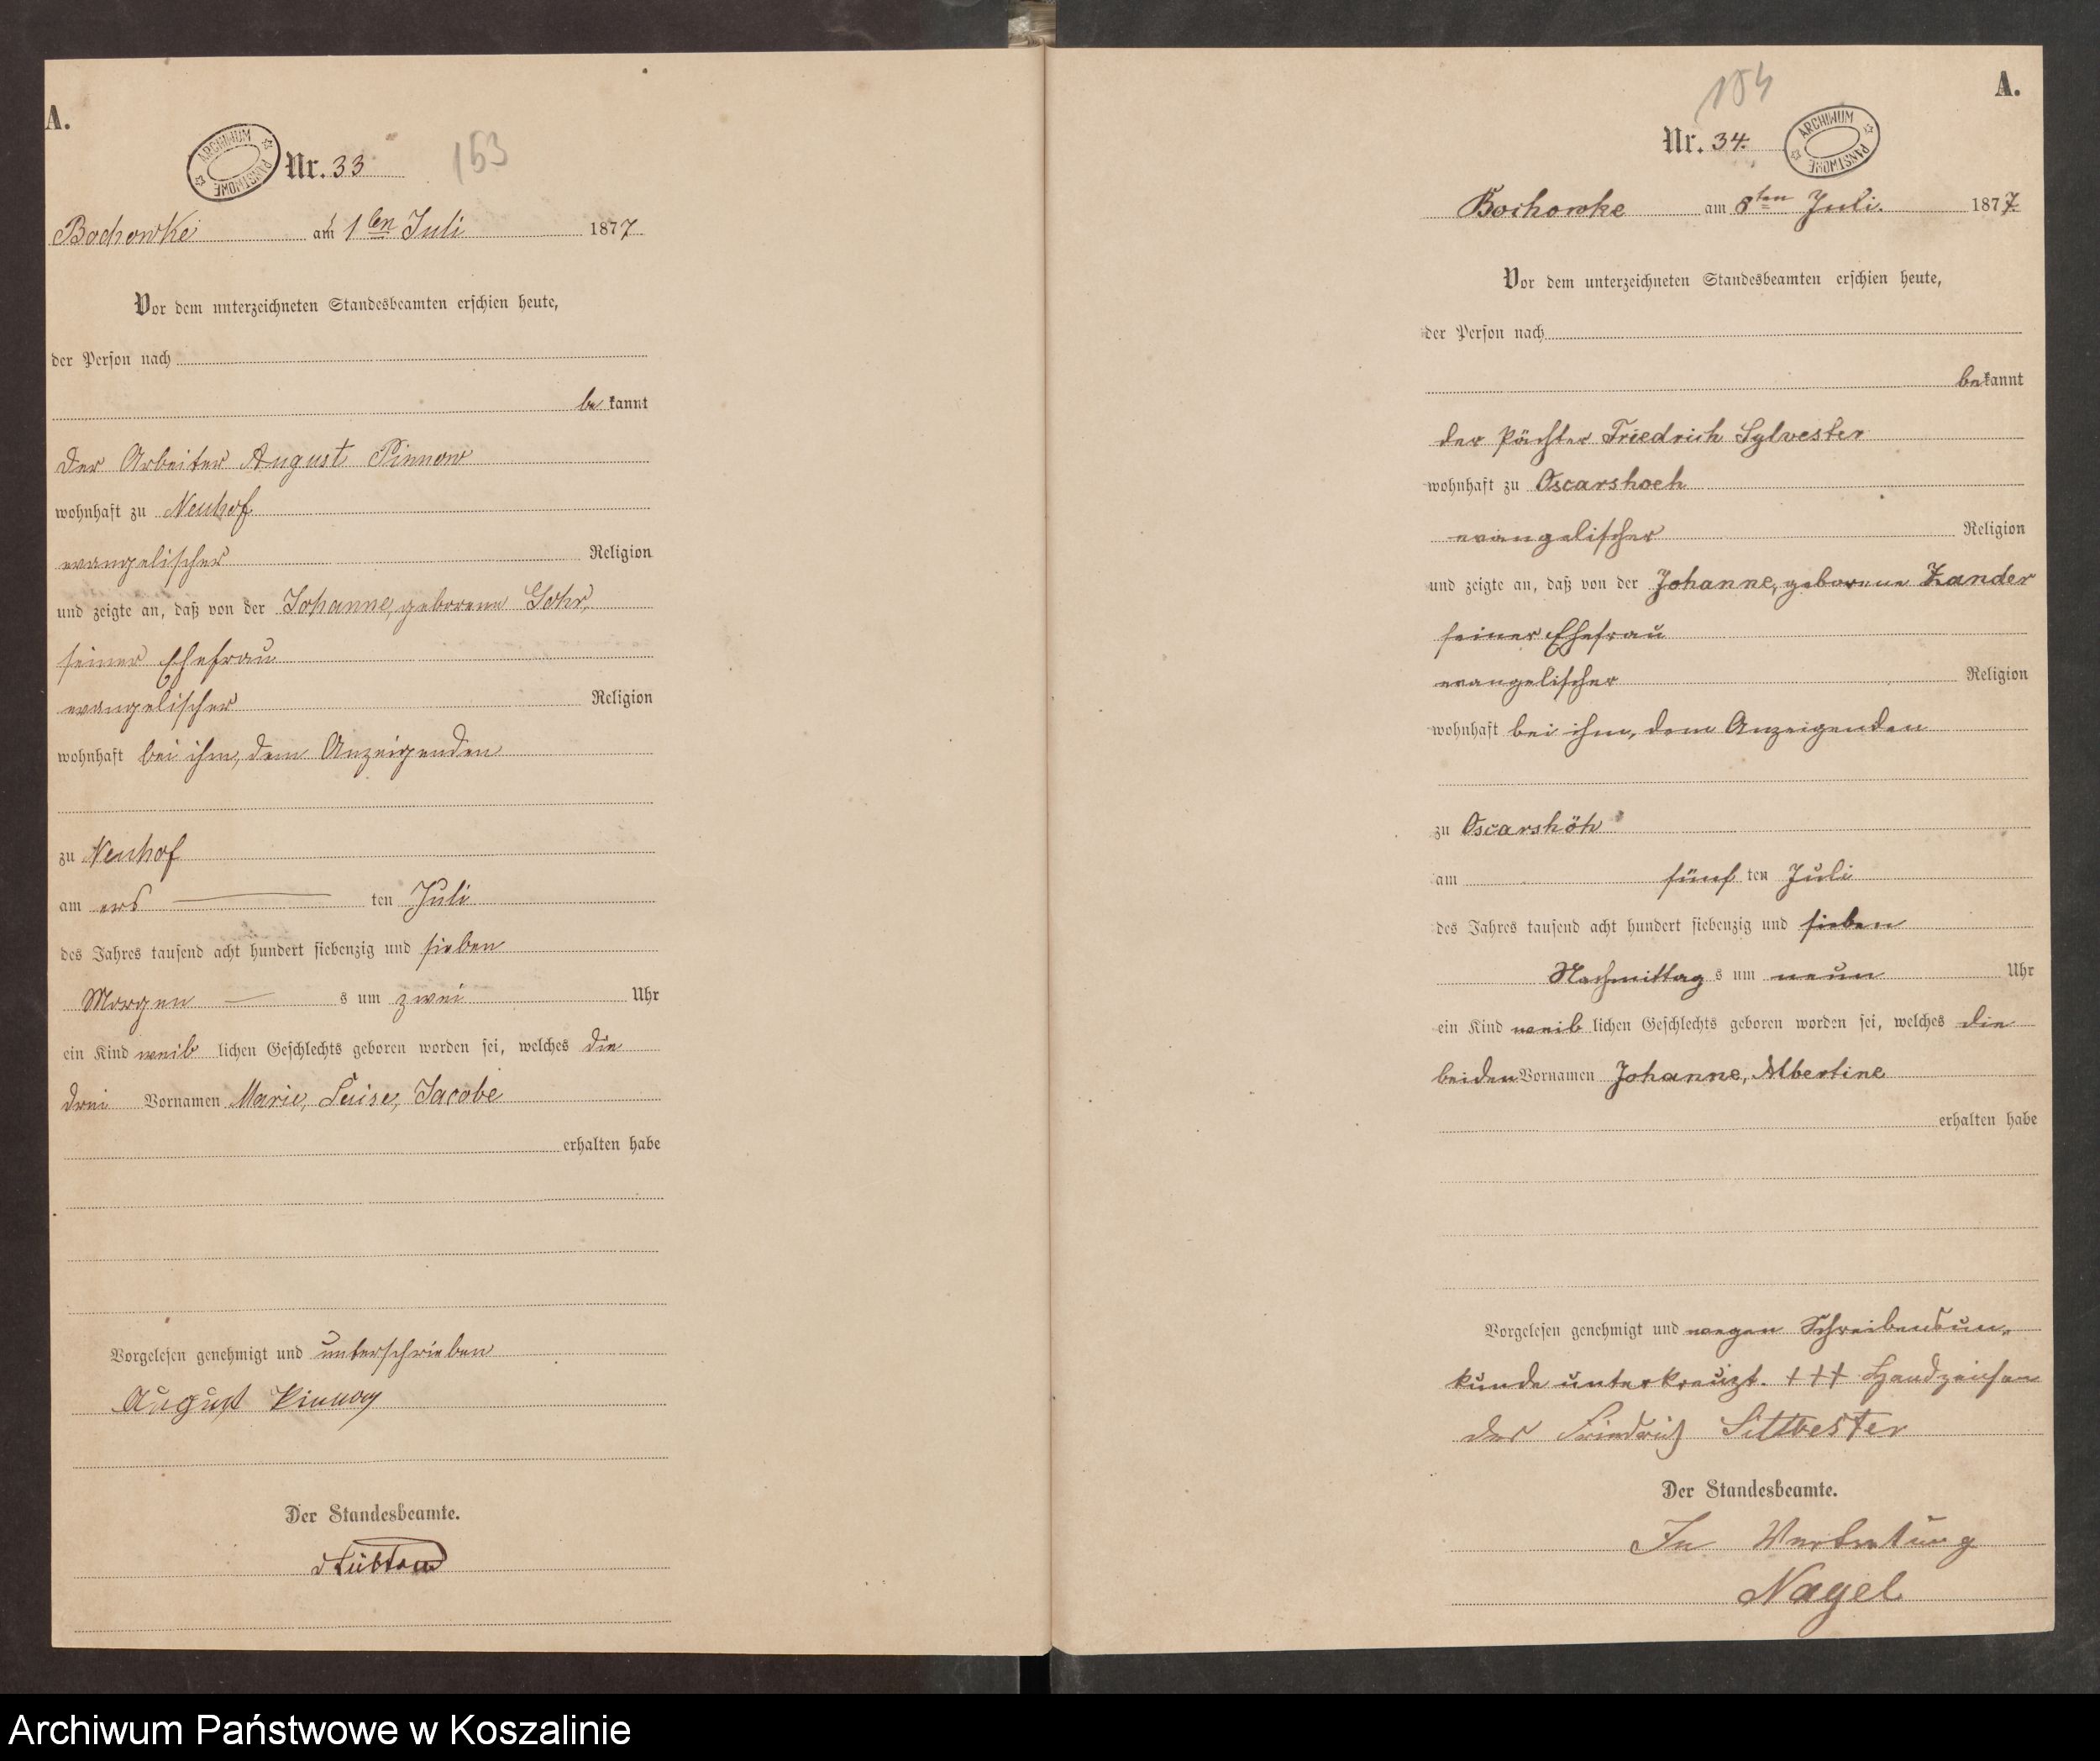 A.
ARCHIWUM PAŃSTWOWE
Nr. 33
153
Bochowke am 1ten Juli 1877
Vor dem unterzeichneten Standesbeamten erschien heute,
der Person nach
be kannt
der Arbeiter August Pinnow
wohnhaft zu Neuhof
evangelischer Religion
und zeigte an, daß von der Johanne, geborene Gohr,
seiner Ehefrau
evangelischer Religion
wohnhaft bei ihm, dem Anzeigenden
zu Neuhof
am ers ten Juli
des Jahres tausend acht hundert siebenzig und sieben
Morgen s um zwei Uhr
ein Kind weib lichen Geschlechts geboren worden sei, welches die
drei Vornamen Marie, Luise, Jacobe
erhalten habe
Vorgelesen genehmigt und unterschrieben
August Pinnow
Der Standesbeamte.
A.
184
Nr. 34.
ARCHIWUM PAŃSTWOWE
Bochowke am 8ten Juli. 1877
Vor dem unterzeichneten Standesbeamten erschien heute,
der Person nach
bekannt
der Pächter Friedrich Sylvester
wohnhaft zu Oscarshoeh
evangelischer Religion
und zeigte an, daß von der Johanne, geborene Zander
seiner Ehefrau
evangelischer Religion
wohnhaft bei ihm, dem Anzeigenden
zu Oscarshöh
am fünf ten Juli
des Jahres tausend acht hundert siebenzig und sieben
Nachmittag s um neun Uhr
ein Kind weib lichen Geschlechts geboren worden sei, welches die
beiden Vornamen Johanne, Albertine
erhalten habe
Vorgelesen genehmigt und wegen Schreibensun-
kunde unterkreuzt. +++ Handzeichen
des Friedrich Sillvester
Der Standesbeamte.
In Vertretung
Nagel
Archiwum Państwowe w Koszalinie